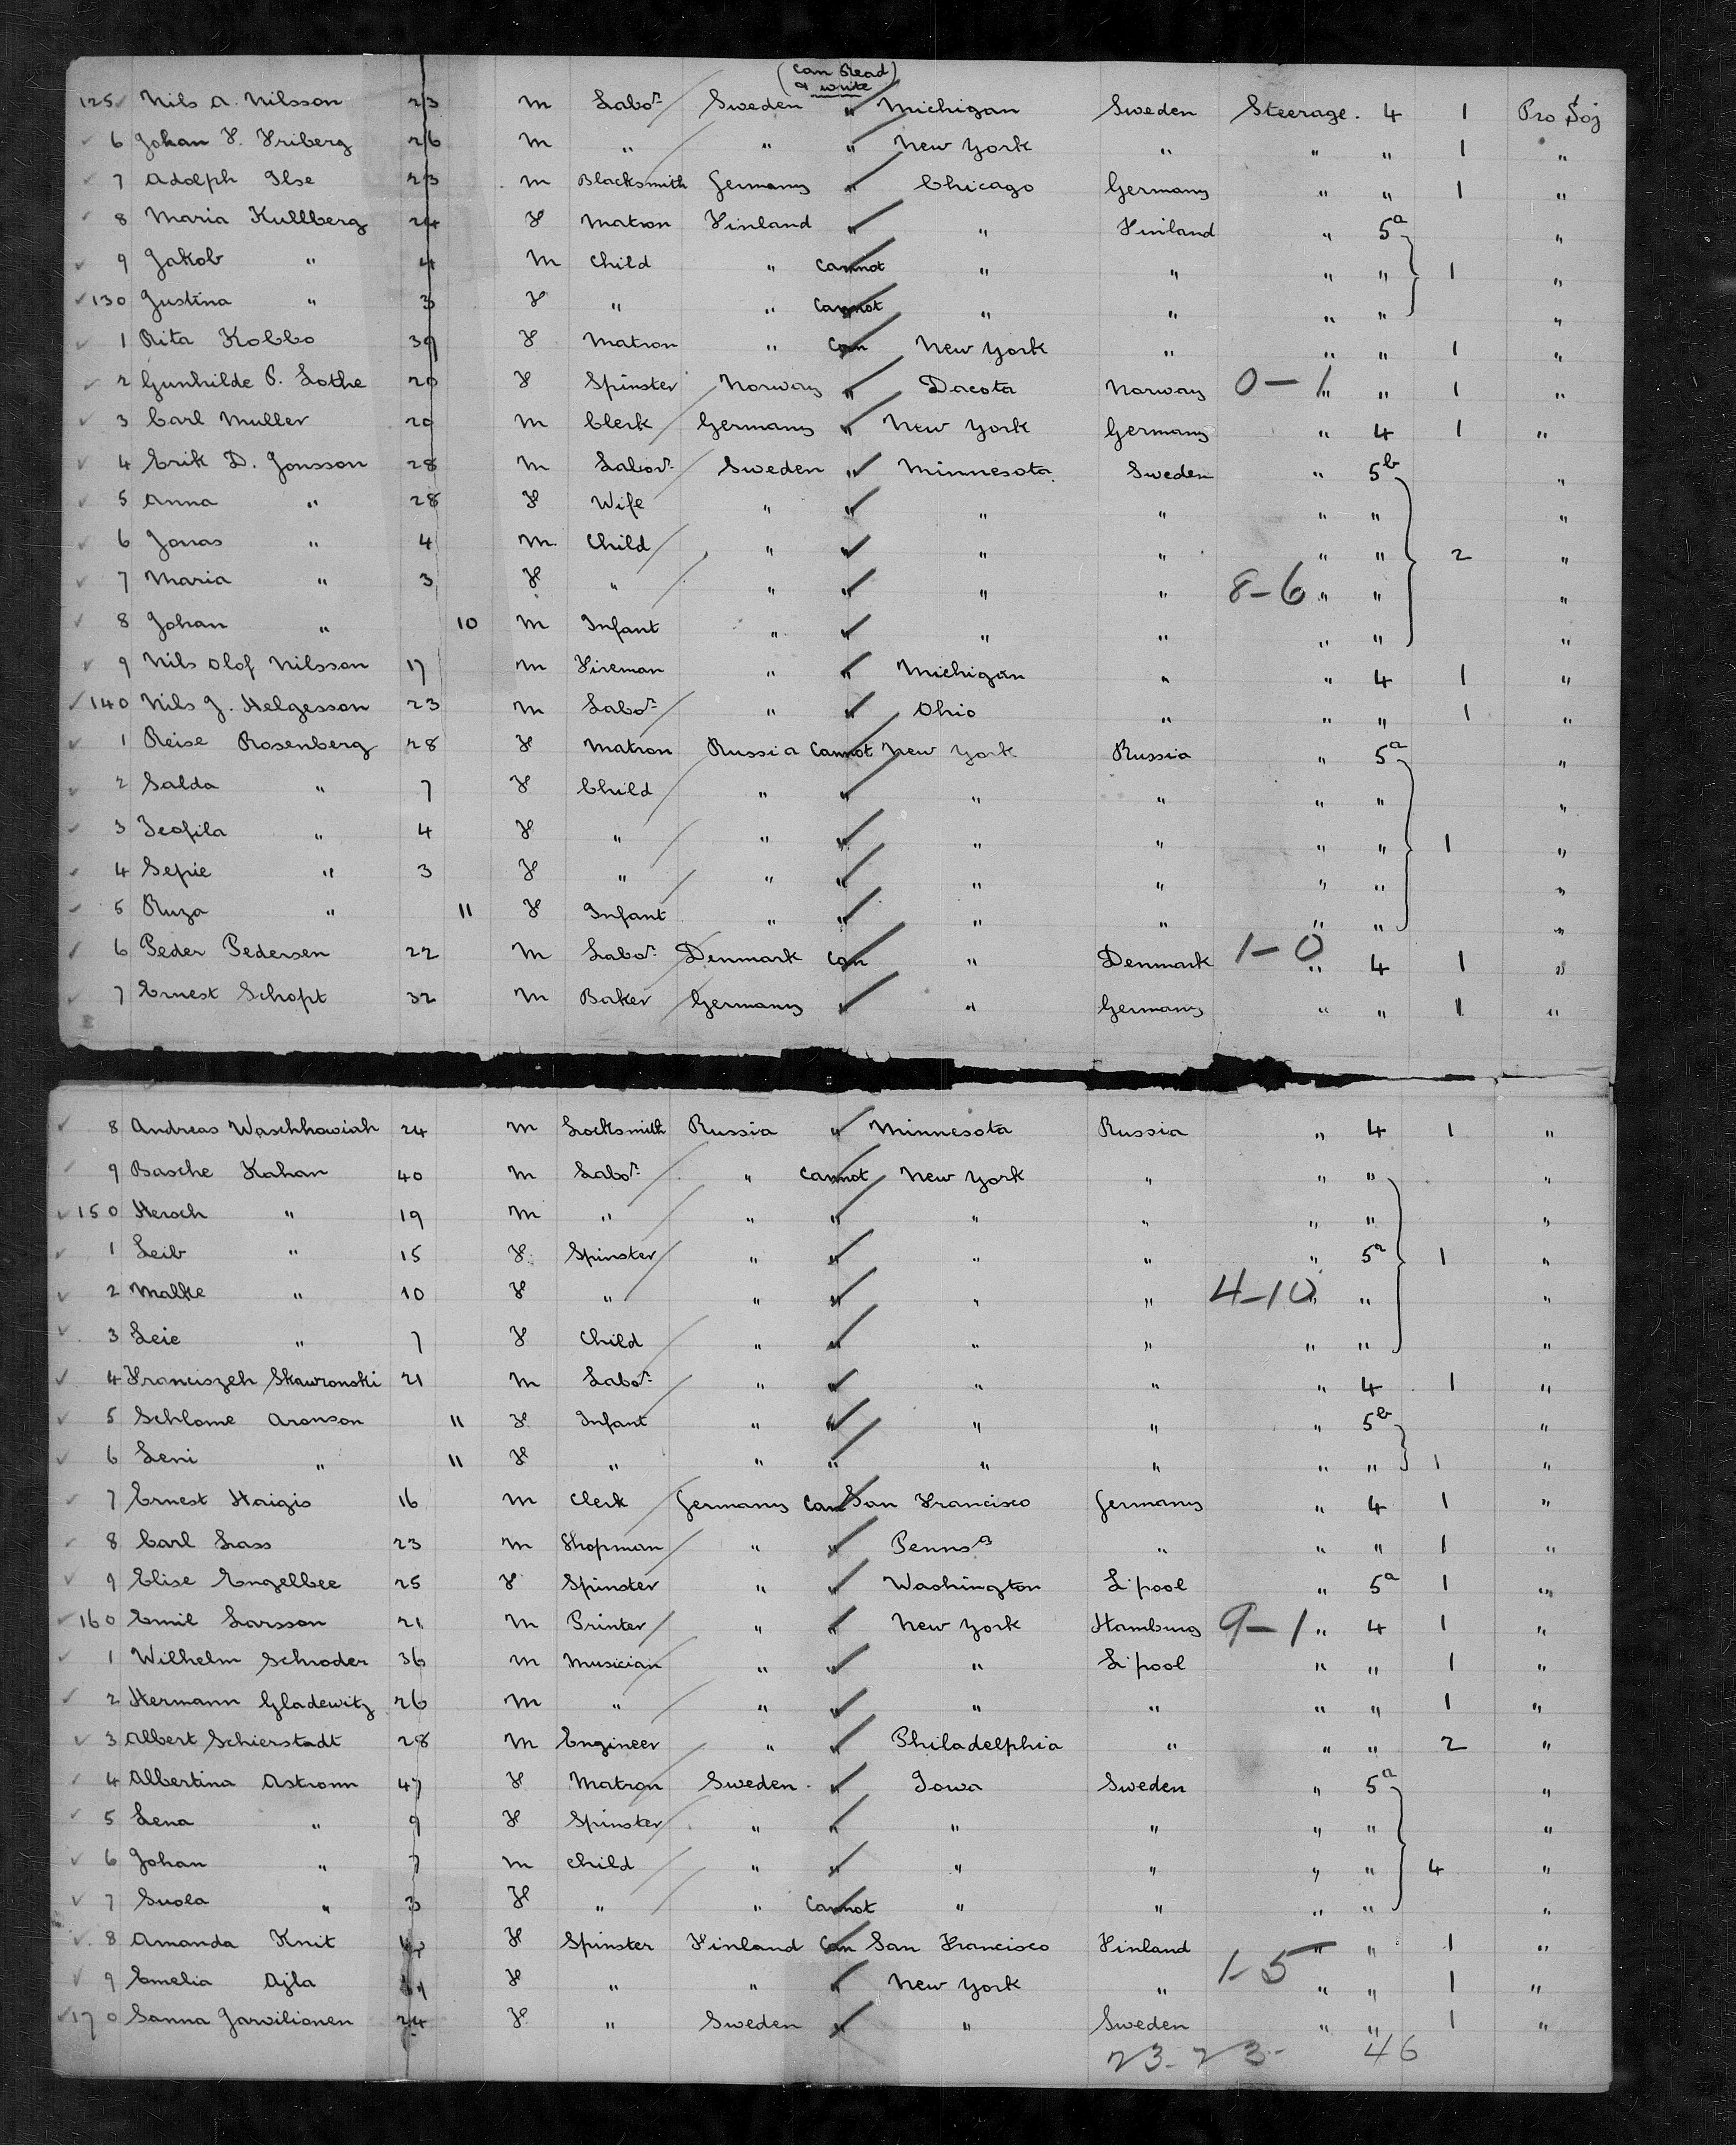 (Can Read
& write)
125 Nils A. Nilsson 23 M Labor Sweden " Michigan Sweden Steerage. 4 1 Pro Soj
6 Johan F. Friberg 26 M " " " New York " " " 1 "
7 Adolph Ilse 23 M Blacksmith Germany " Chicago Germany " " 1 "
8 Maria Kullberg 24 F Matron Finland " " Finland " 5a "
9 Jakob " 4 M Child " Cannot " " " " 1 "
130 Justina " 3 F " " Cannot " " " " "
1 Rita Kobbo 39 F Matron " Can New York " " " 1 "
2 Gunhilde P. Lothe 20 F Spinster Norway " Dacota Norway 0-1 " " 1 "
3 Carl Muller 20 M Clerk Germany " New York Germany " 4 1 "
4 Erik D. Jonsson 28 M Labor Sweden " Minnesota Sweden " 5b "
5 Anna " 28 F Wife " " " " " " "
6 Jonas " 4 M Child " " " " " " 2 "
7 Maria " 3 F " " " " " 8-6 " " "
8 Johan " 10 M Infant " " " " " " "
9 Nils Olof Nilsson 17 M Fireman " " Michigan " " 4 1 "
140 Nils J. Helgesson 23 M Labor " " Ohio " " " 1 "
1 Reise Rosenberg 28 F Matron Russia Cannot New York Russia " 5a "
2 Salda " 7 F Child " " " " " " "
3 Teofila " 4 F " " " " " " " 1 "
4 Sepie " 3 F " " " " " " " "
5 Ruza " 11 F Infant " " " " " " "
6 Peder Pedersen 22 M Labor Denmark Can " Denmark 1-0 " 4 1 "
7 Ernest Schopt 32 M Baker Germany " " Germany " " 1 "
8 Andreas Waschhowiah 24 M Locksmith Russia " Minnesota Russia " 4 1 "
9 Basche Kahan 40 M Labor " Cannot New York " " " "
150 Hersch " 19 M " " " " " " " "
1 Leib " 15 F Spinster " " " " " 5a 1 "
2 Malke " 10 F " " " " " 4-10 " " "
3 Leie " 7 F Child " " " " " " "
4 Franciszeh Skawronski 21 M Labor " " " " " 4 1 "
5 Schlome Aronson 11 F Infant " " " " " 5b "
6 Leni " 11 F " " " " " " " 1 "
7 Ernest Haigis 16 M Clerk Germany Can San Francisco Germany " 4 1 "
8 Carl Lass 23 M Shopman " " Pennsa " " " 1 "
9 Elise Engelbee 25 F Spinster " " Washington L'pool " 5a 1 "
160 Emil Larsson 21 M Printer " " New York Hamburg 9-1 " 4 1 "
1 Wilhelm Schroder 36 M Musician " " " L'pool " " 1 "
2 Hermann Gladewitz 26 M " " " " " " " 1 "
3 Albert Schierstadt 28 M Engineer " " Philadelphia " " " 2 "
4 Albertina Astromn 47 F Matron Sweden " Iowa Sweden " 5a "
5 Lena " 9 F Spinster " " " " " " "
6 Johan " 7 M Child " " " " " " 4 "
7 Suola " 3 F " " Cannot " " " " "
8 Amanda Knit F Spinster Finland Can San Francisco Finland 1-5 " " 1 "
9 Emelia Ajla F " " " New York " " " 1 "
170 Sanna Jarvilionen 24 F " Sweden " " Sweden " " 1 "
23-23- 46